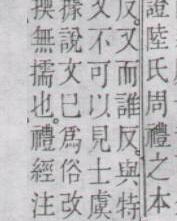 證陸氏周禮之本
反又而誰反與特
不可以見士虞
據說文已爲俗改
無擩也禮經注